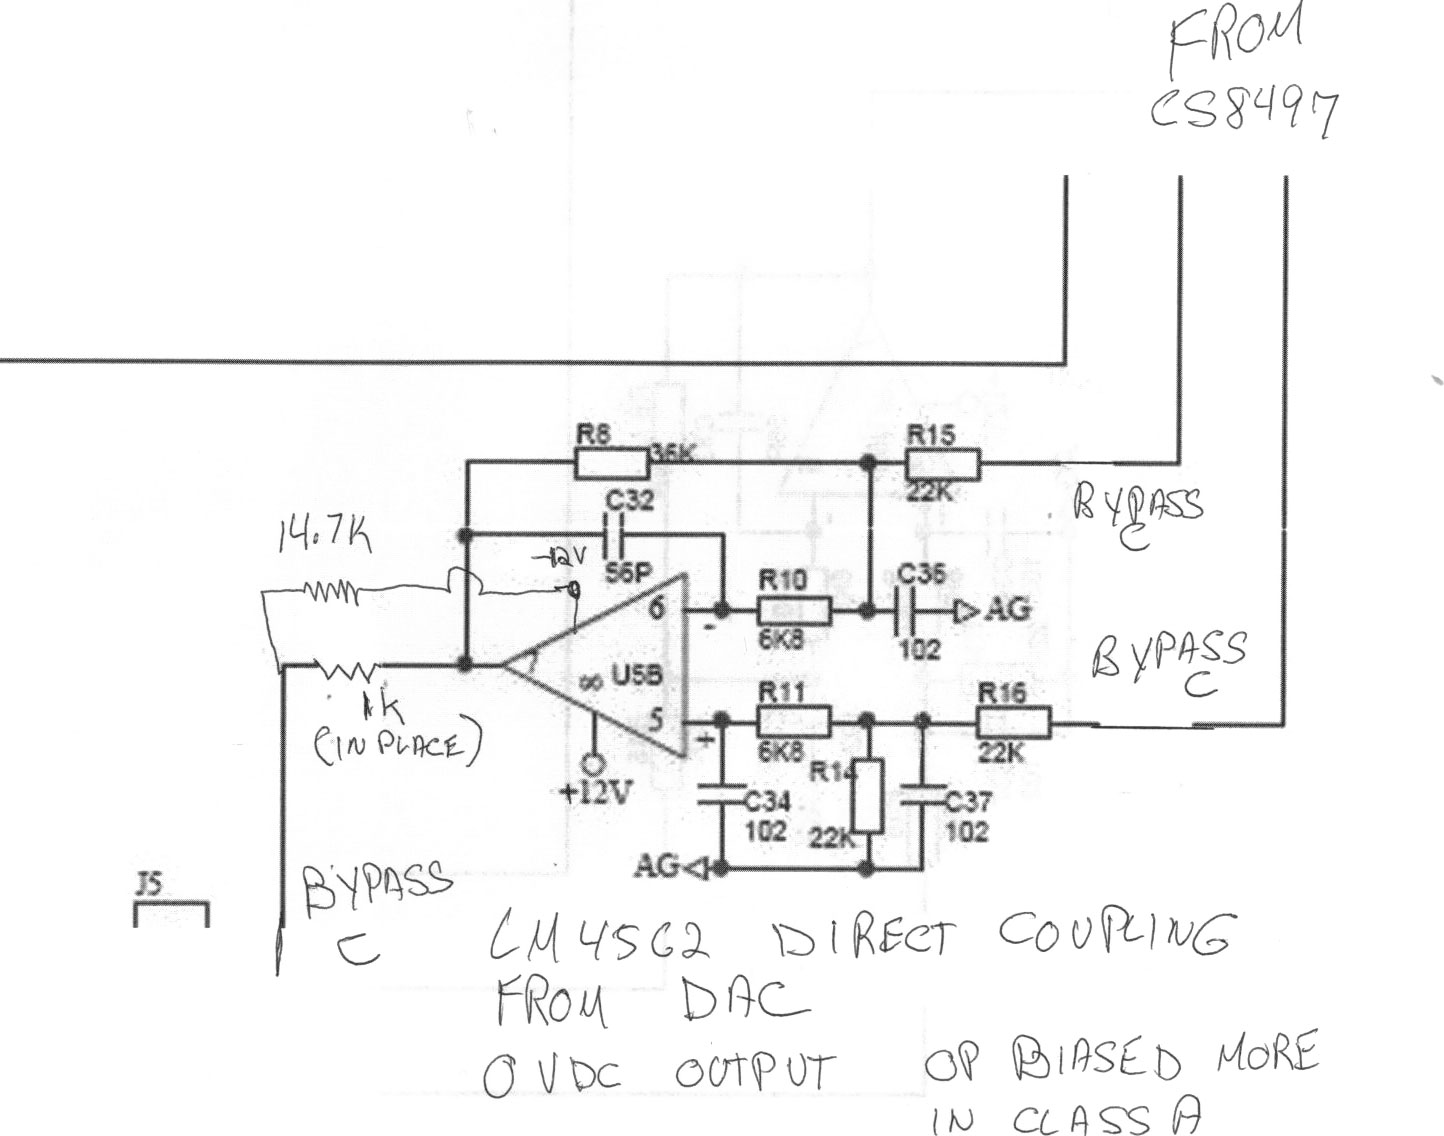 FROM
CS8497
R8
36K
R15
22K
C32
56P
BYPASS
C
14.7K
-12V
6
-
R10
6K8
C36
102
AG
BYPASS
C
7
∞ U5B
1K
(IN PLACE)
5
+
R11
6K8
R16
22K
+12V
R14
22K
C34
102
C37
102
AG
J5
BYPASS
C
LM4562 DIRECT COUPLING
FROM DAC
0 VDC OUTPUT OP BIASED MORE
IN CLASS A